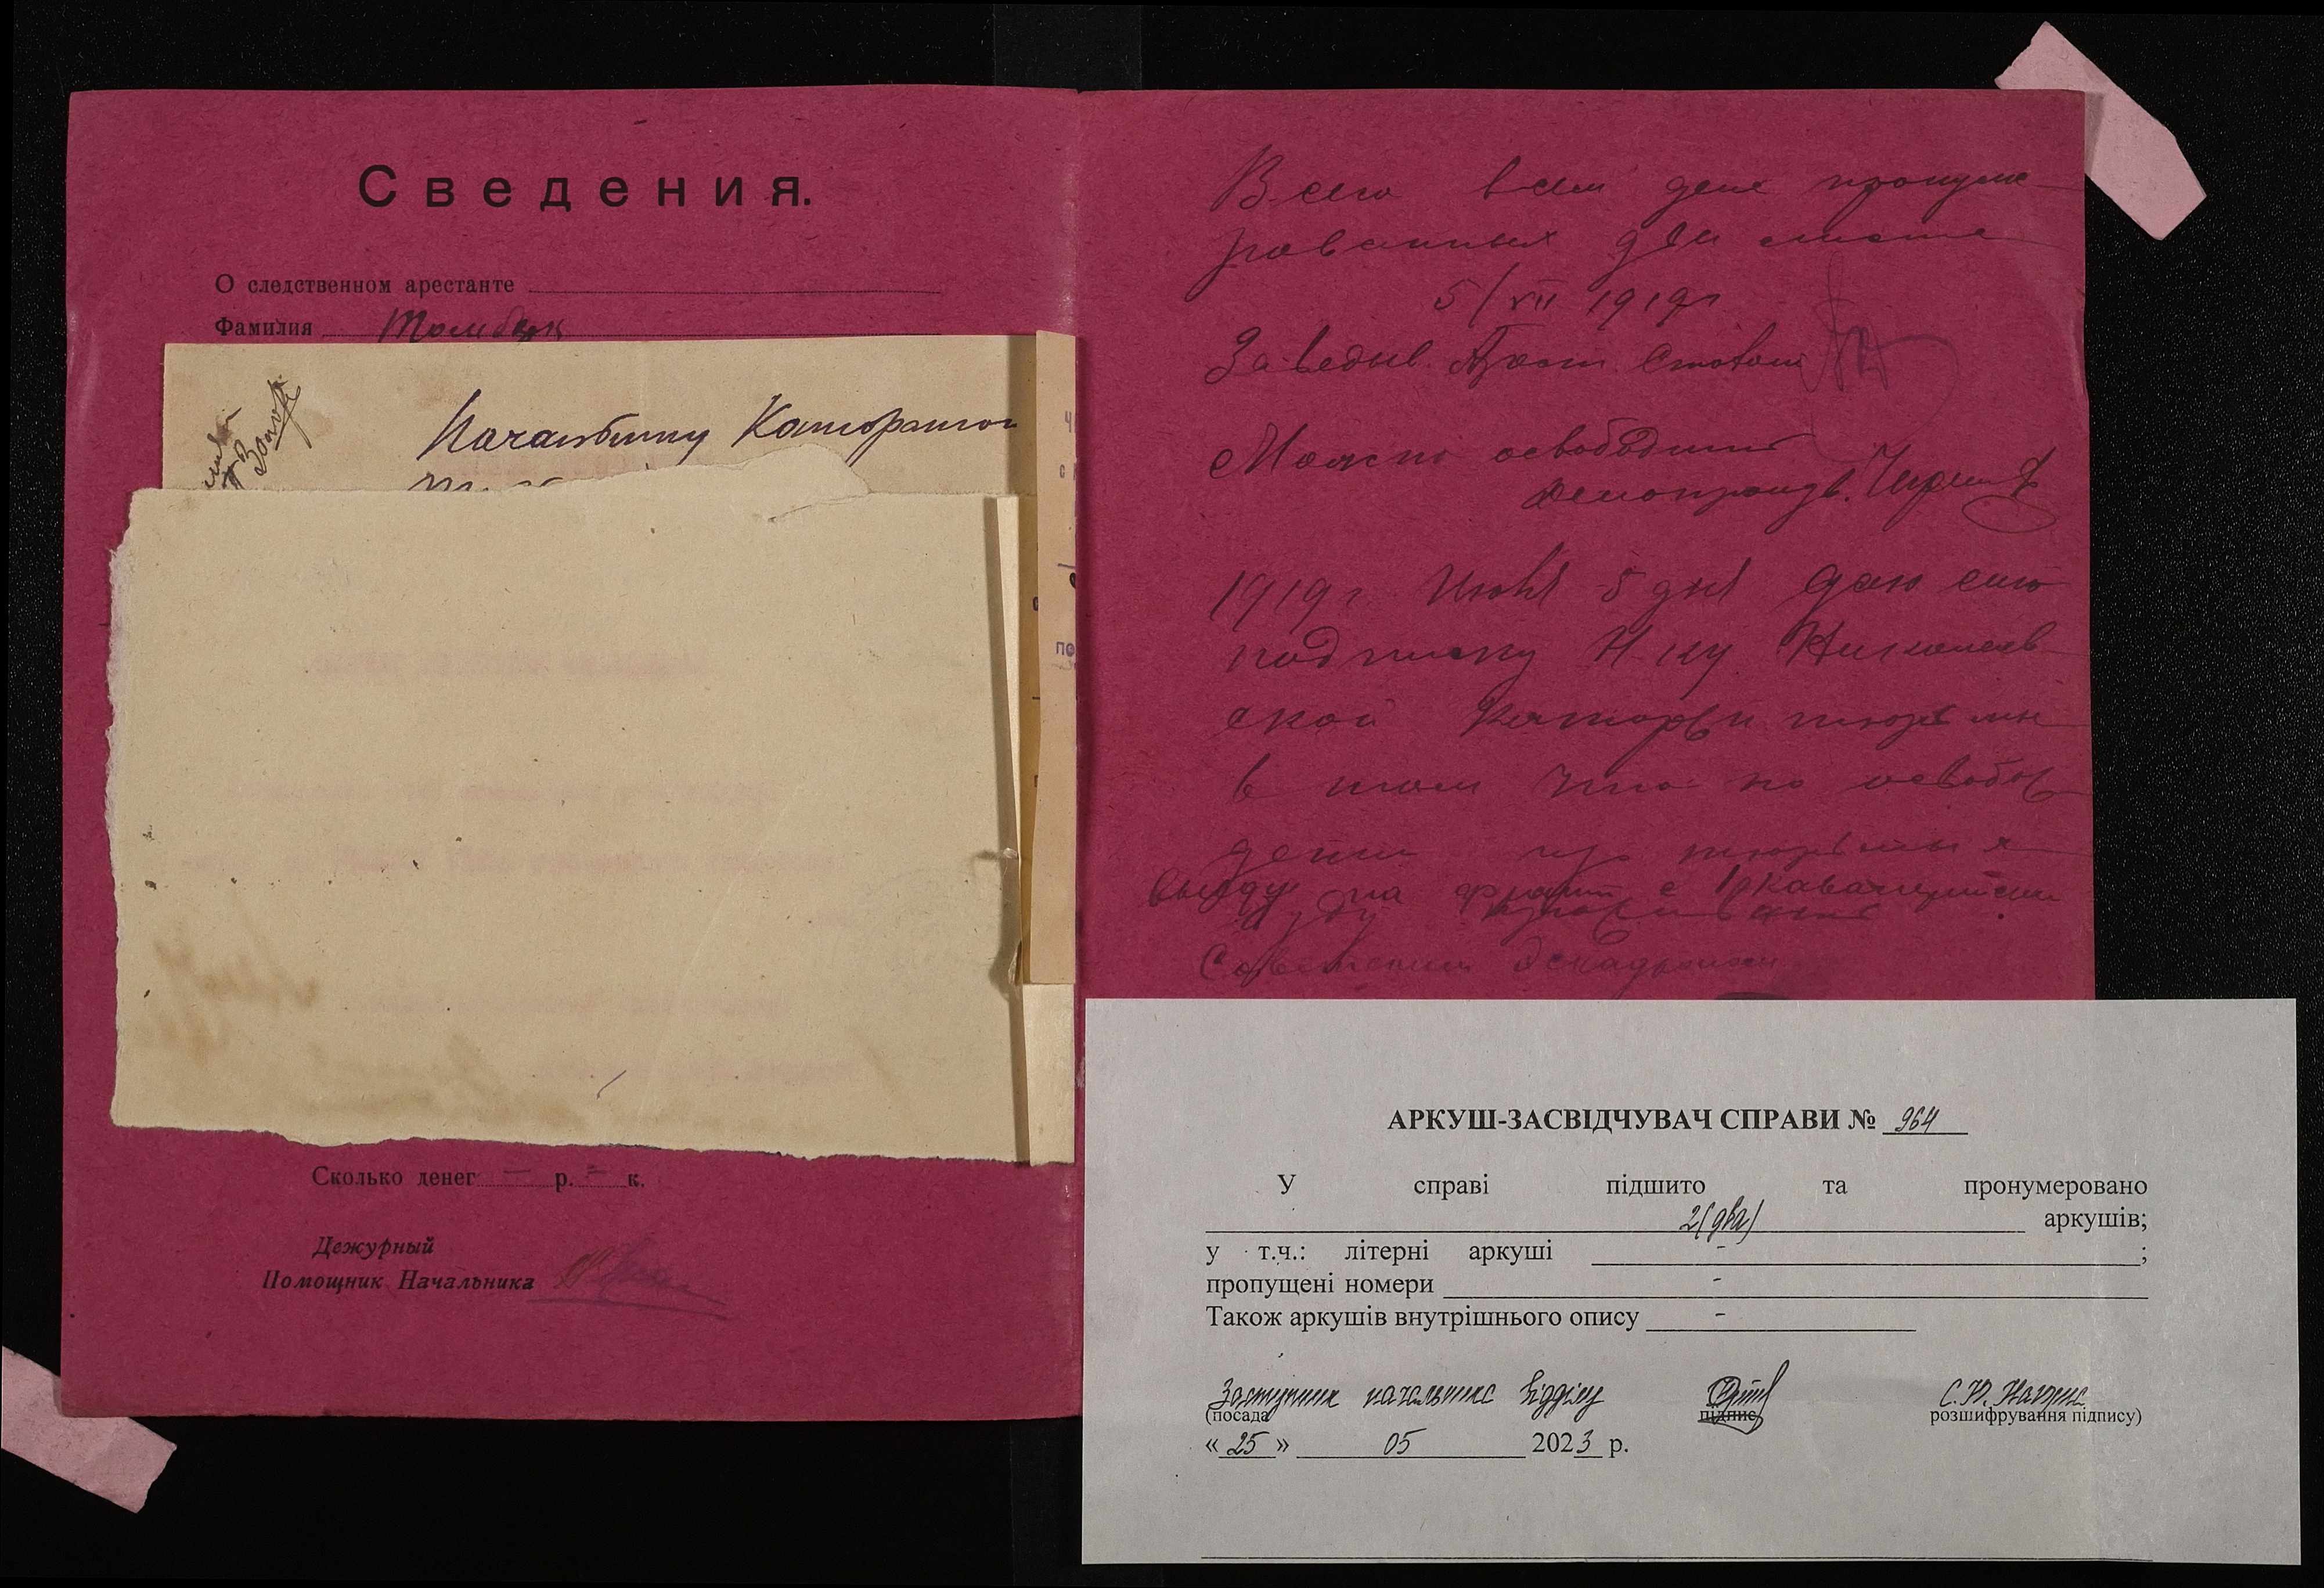 Сведения.
О следственном арестанте
Фамилия
Начальнику
Сколько денег — р. = к.
Дежурный
Помощник Начальника
Всего в сем деле пронуме-
рованных два листа
5/VII 1919г
Заведыв. Арест. столом
Можно освободить
Делопроизв.
1919г. Июля 5 дня даю сию
подписку Н-ку Николаев-
ской Каторжн тюрьмы
в том что по освобож-
дении из тюрьмы я
выеду на фронт с
Советским эскадроном
АРКУШ-ЗАСВІДЧУВАЧ СПРАВИ № 964
У справі підшито та пронумеровано
2(два) аркушів;
у т.ч.: літерні аркуші - ;
пропущені номери -
Також аркушів внутрішнього опису -
Заступник начальника відділу
(посада підпис розшифрування підпису)
« 25 » 05 2023 р.